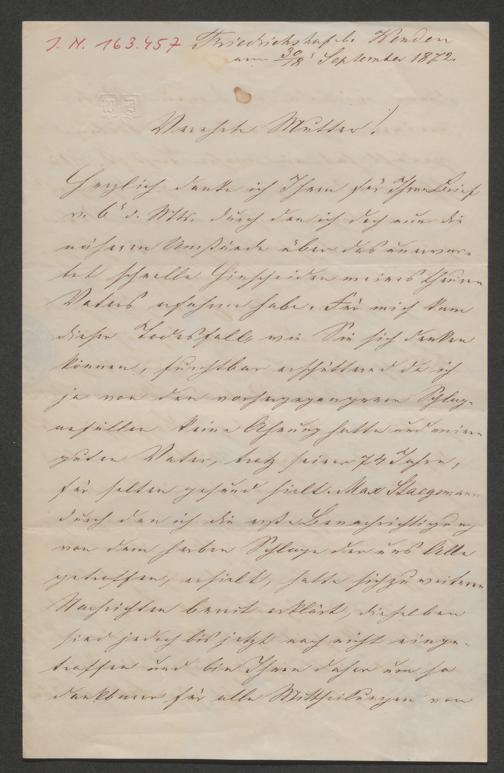 J. N. 163.457 Friedrichshof b. Wenden
am 30/18 September 1872.
Verehrte Mutter!
Herzlich danke ich Ihnen für Ihren Brief
v. 6 d. Mts. durch den ich doch nun die
näheren Umstände über das unerwar-
tet schnelle Hinscheiden meines theuren
Vaters erfahren habe. Für mich kam
dieser Todesfall, wie Sie sich denken
können, furchtbar erschütternd da ich
ja von den vorhergegangenen Schlag-
anfällen keine Ahnung hatte und meinen
guten Vater, trotz seiner 74 Jahre,
für selten gesund hielt. Max Staegemann
durch den ich die erste Benachrichtigung
von dem herben Schlage der uns Alle
getroffen, erhielt, hatte sich zu weiteren
Nachrichten bereit erklärt, dieselben
sind jedoch bis jetzt noch nicht einge-
troffen und bin Ihnen daher um so
dankbarer für alle Mittheilungen von